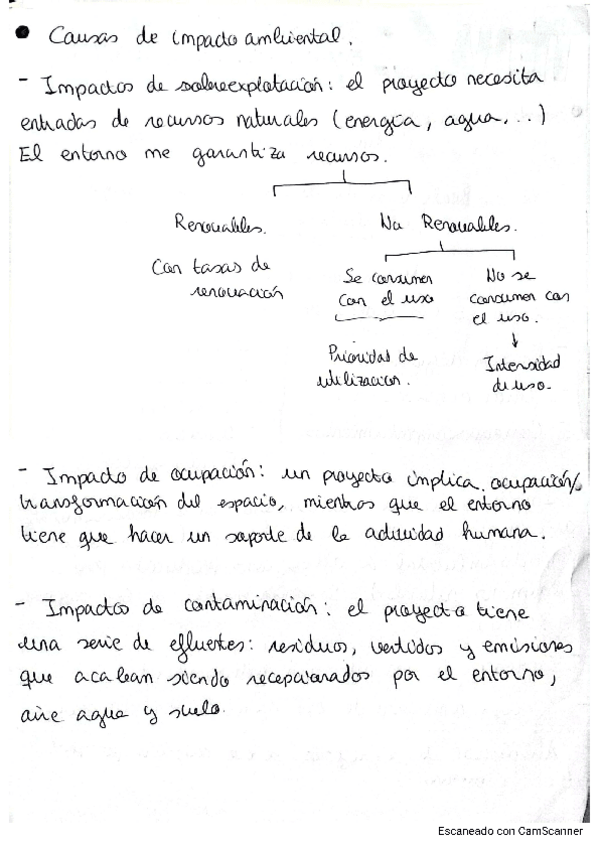 ● Causas de impacto ambiental.
- Impactos de sobreexplotación: el proyecto necesita
entradas de recursos naturales (energía, agua, ...)
El entorno me garantiza recursos.
Renovables. No Renovables.
Con tasas de
renovación
Se consumen
con el uso
No se
consumen con
el uso.
Prioridad de
utilización.
Intensidad
de uso.
- Impacto de ocupación: un proyecto implica ocupación/
transformación del espacio, mientras que el entorno
tiene que hacer un soporte de la actividad humana.
- Impactos de contaminación: el proyecto tiene
una serie de efluentes: residuos, vertidos y emisiones
que acaban siendo recepcionados por el entorno,
aire agua y suelo.
Escaneado con CamScanner